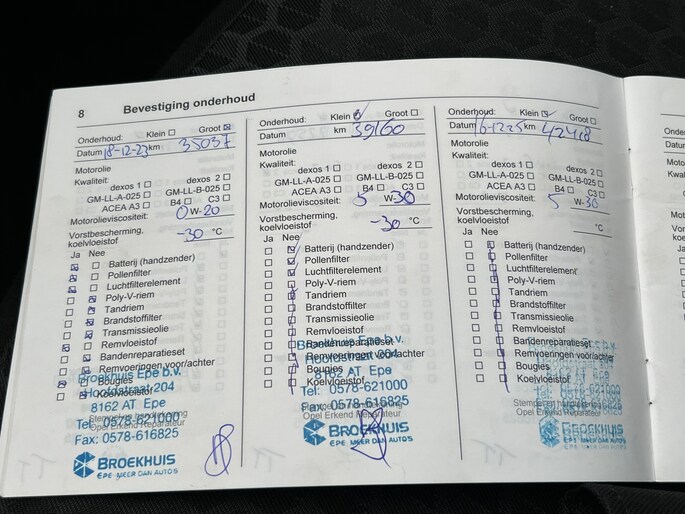 8 Bevestiging onderhoud
Onderhoud: Klein Groot
Datum 18-12-23 km 35037
Motorolie
Kwaliteit:
dexos 1 dexos 2
GM-LL-A-025 GM-LL-B-025
ACEA A3 B4 C3
Motorolieviscositeit: 0 W-20
Vorstbescherming, koelvloeistof -30 °C
Ja Nee
Batterij (handzender)
Pollenfilter
Luchtfilterelement
Poly-V-riem
Tandriem
Brandstoffilter
Transmissieolie
Remvloeistof
Bandenreparatieset
Remvoeringen voor/achter
Bougies
Koelvloeistof
Broekhuis Epe b.v.
Hoofdstraat 204
8162 AT Epe
Tel: 0578-621000
Fax: 0578-616825
Opel Erkend Reparateur
BROEKHUIS
EPE MEER DAN AUTOS
Onderhoud: Klein Groot
Datum km 39160
Motorolie
Kwaliteit:
dexos 1 dexos 2
GM-LL-A-025 GM-LL-B-025
ACEA A3 B4 C3
Motorolieviscositeit: 5 W-30
Vorstbescherming, koelvloeistof -30 °C
Ja Nee
Batterij (handzender)
Pollenfilter
Luchtfilterelement
Poly-V-riem
Tandriem
Brandstoffilter
Transmissieolie
Remvloeistof
Bandenreparatieset
Remvoeringen voor/achter
Bougies
Koelvloeistof
Broekhuis Epe b.v.
Hoofdstraat 204
8162 AT Epe
Tel: 0578-621000
Fax: 0578-616825
Opel Erkend Reparateur
BROEKHUIS
EPE MEER DAN AUTOS
Onderhoud: Klein Groot
Datum 16-12-25 km 42418
Motorolie
Kwaliteit:
dexos 1 dexos 2
GM-LL-A-025 GM-LL-B-025
ACEA A3 B4 C3
Motorolieviscositeit: 5 W-30
Vorstbescherming, koelvloeistof °C
Ja Nee
Batterij (handzender)
Pollenfilter
Luchtfilterelement
Poly-V-riem
Tandriem
Brandstoffilter
Transmissieolie
Remvloeistof
Bandenreparatieset
Remvoeringen voor/achter
Bougies
Koelvloeistof
Opel Erkend Reparateur
BROEKHUIS
EPE MEER DAN AUTOS